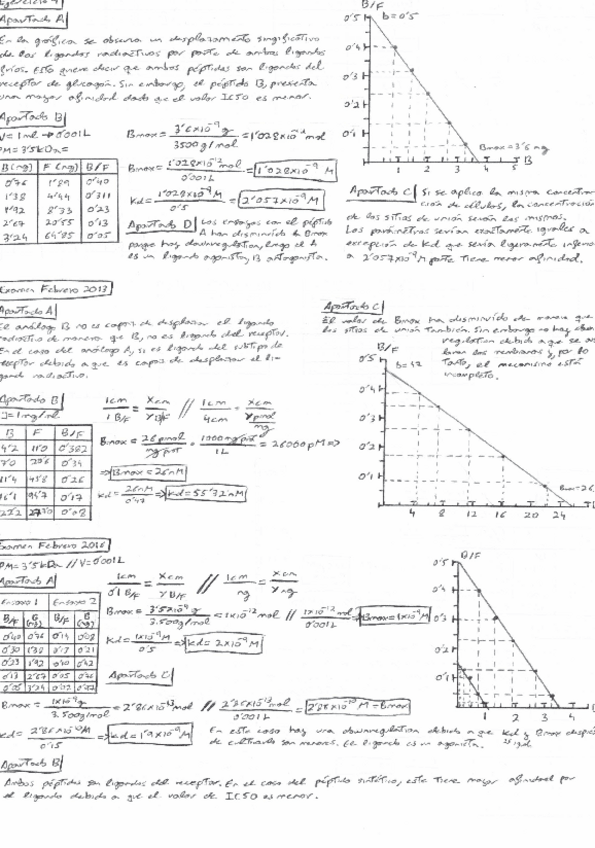 Apartado A
En la gráfica se observa un desplazamiento significativo
de los ligandos radiactivos por parte de ambos ligandos
fríos. Esto quiere decir que ambos péptidos son ligandos del
receptor de glucagón. Sin embargo, el péptido B, presenta
una mayor afinidad dado que el valor IC50 es menor.
Apartado B
V = 1 mL → 0'001 L
PM = 3'5 kDa =
B (ng) F (ng) B/F
0'76 1'89 0'40
1'38 4'44 0'311
1'92 8'33 0'23
2'67 20'55 0'13
3'24 64'85 0'05
Bmax = 3'6×10⁻⁹ g / 3500 g/mol = 1'028×10⁻¹² mol
Bmax = 1'028×10⁻¹² mol / 0'001 L = 1'028×10⁻⁹ M
Kd = 1'028×10⁻⁹ M / 0'5 = 2'057×10⁻⁹ M
Apartado D Los ensayos con el péptido
A han disminuido la Bmax
porque hay downregulation, luego el A
es un ligando agonista, B antagonista.
B/F
0'5 b = 0'5
0'4
0'3
0'2
0'1
Bmax = 3'6 ng
1 2 3 4 5 B
Apartado C Si se aplica la misma concentra-
ción de células, la concentración
de los sitios de unión serán los mismos.
Los parámetros serían exactamente iguales a
excepción de Kd que sería ligeramente inferio
a 2'057×10⁻⁹ M
tiene menor afinidad.
Examen Febrero 2013
Apartado A
El análogo B no es capaz de desplazar el ligando
radiactivo de manera que B, no es ligando del receptor.
En el caso del análogo A, si es ligando del subtipo de
receptor debido a que es capaz de desplazar el li-
gando radiactivo.
Apartado B
= 1 mg/mL
B F B/F
4'2 11'0 0'382
7'0 20'6 0'34
11'4 43'8 0'26
16'1 94'7 0'17
0'08
1 cm / 1 B/F = x cm / y B/F // 1 cm / 4 cm = x cm / y pmol/mg
Bmax = 26 pmol / mg prot · 1000 mg prot / 1 L = 26000 pM ⇒
⇒ Bmax = 26 nM
Kd = 26 nM / 0'47 ⇒ Kd = 55'32 nM
Apartado C
El valor de Bmax ha disminuido de manera que
los sitios de unión también. Sin embargo no hay down
regulation debido a que se
las membranas y, por lo
tanto, el mecanismo está
incompleto.
B/F
0'5
0'4
0'3
0'2
0'1
4 8 12 16 20 24
Examen Febrero 2016
PM = 3'5 kDa // V = 0'001 L
Apartado A
Ensayo 1 Ensayo 2
B/F B (ng) B/F B (ng)
0'40 0'76 0'14 0'08
0'30 1'38 0'17 0'21
0'23 1'92 0'10 0'42
0'13 2'67 0'05
1 cm / 0'1 B/F = x cm / y B/F // 1 cm / ng = x cm / y ng
Bmax = 3'5×10⁻⁹ g / 3.500 g/mol = 1×10⁻¹² mol // 1×10⁻¹² mol / 0'001 L ⇒ Bmax = 1×10⁻⁹ M
Kd = 1×10⁻⁹ M / 0'5 ⇒ Kd = 2×10⁻⁹ M
Apartado C
Bmax = 1×10⁻⁹ g / 3.500 g/mol = 2'86×10⁻¹³ mol // 2'86×10⁻¹³ mol / 0'001 L = 2'86×10⁻¹⁰ M = Bmax
Kd = 2'86×10⁻¹⁰ M / 0'15 ⇒ Kd = 1'9×10⁻⁹ M
En este caso hay una downregulation debido a que Kd y Bmax después
de cultivarlo son menores. El ligando es un agonista.
B/F
0'5
0'4
0'3
0'2
0'1
1 2 3 4
Apartado B
Ambos péptidos son ligandos del receptor. En el caso del péptido sintético, este tiene mayor afinidad por
el ligando debido a que el valor de IC50 es menor.